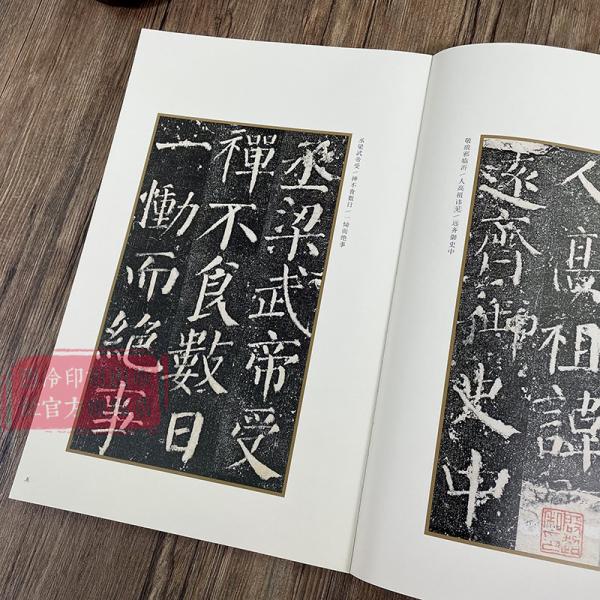 人高祖諱
遠齊御史中
敬琅邪临沂/人高祖讳见/远齐御史中
丞梁武帝受/禅不食数日/一恸而绝事
丞梁武帝受
禪不食數日
一慟而絕事
泠印
社官方